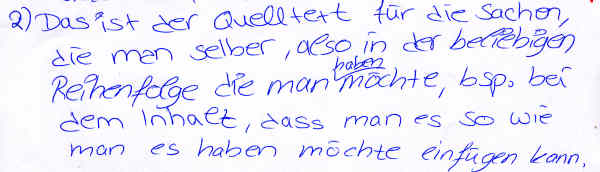 2) Das ist der Quelltext für die Sachen,
die man selber, also in der beliebigen
Reihenfolge die man haben möchte, bsp. bei
dem Inhalt, dass man es so wie
man es haben möchte einfügen kann.